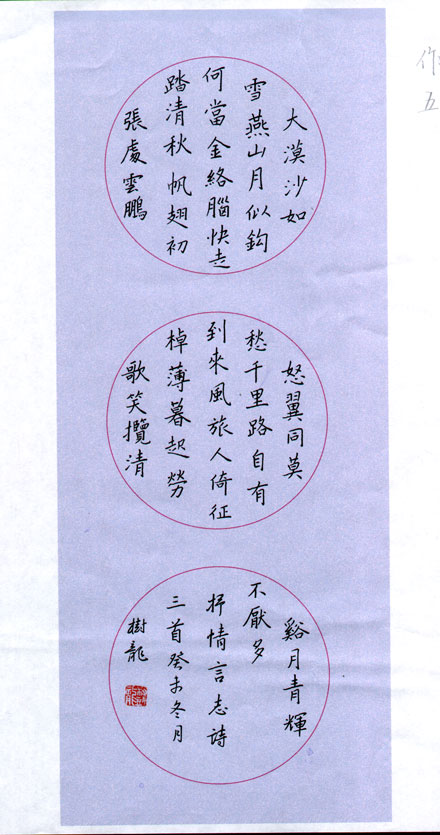 大漠沙如
雪燕山月似鈎
何當金絡腦快走
踏清秋帆翅初
張處雲鵬
怒翼同莫
愁千里路自有
到來風旅人倚征
棹薄暮起勞
歌笑攬清
谿月青輝
不厭多
抒情言志詩
三首癸未冬月
樹龍
作
五